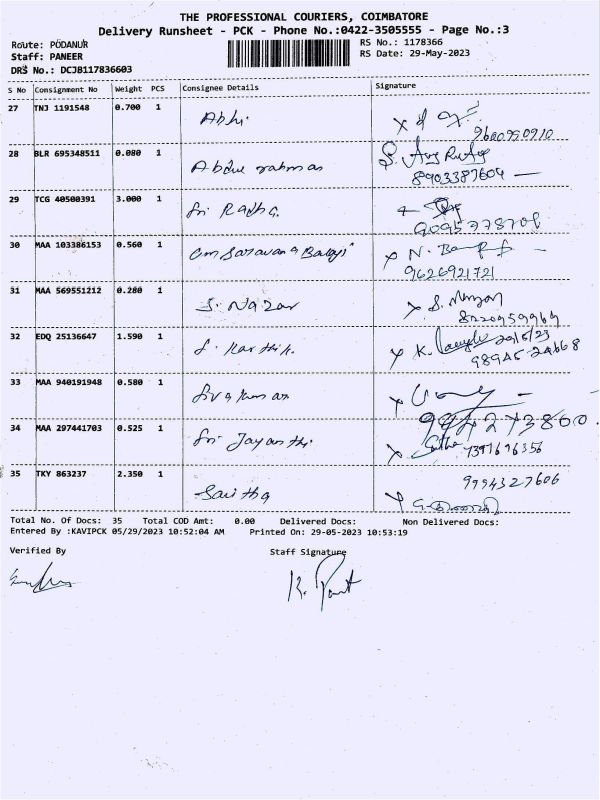 THE PROFESSIONAL COURIERS, COIMBATORE
Delivery Runsheet - PCK - Phone No.:0422-3505555 - Page No.:3
Route: PODANUR
RS No.: 1178366
Staff: PANEER
RS Date: 29-May-2023
DRS No.: DCJB117836603
S No Consignment No Weight PCS Consignee Details Signature
27 TNJ 1191548 0.700 1 Abhi
9600990910
28 BLR 695348511 0.080 1 Abdul rahman
8903387604
29 TCG 40500391 3.000 1 Sri Radha
9095778708
30 MAA 103386153 0.560 1 Om Saravana Balaji N.
9626921721
31 MAA 569551212 0.280 1 S. Nazar S.
8220959969
32 EDQ 25136647 1.590 1 S. Karthik K. 29/5/23
33 MAA 940191948 0.580 1 Siva kumar
994273860
34 MAA 297441703 0.525 1 Sri Jayanthi
7397696356
35 TKY 863237 2.350 1 Saritha 9994327606
Total No. Of Docs: 35 Total COD Amt: 0.00 Delivered Docs: Non Delivered Docs:
Entered By :KAVIPCK 05/29/2023 10:52:04 AM Printed On: 29-05-2023 10:53:19
Verified By Staff Signature